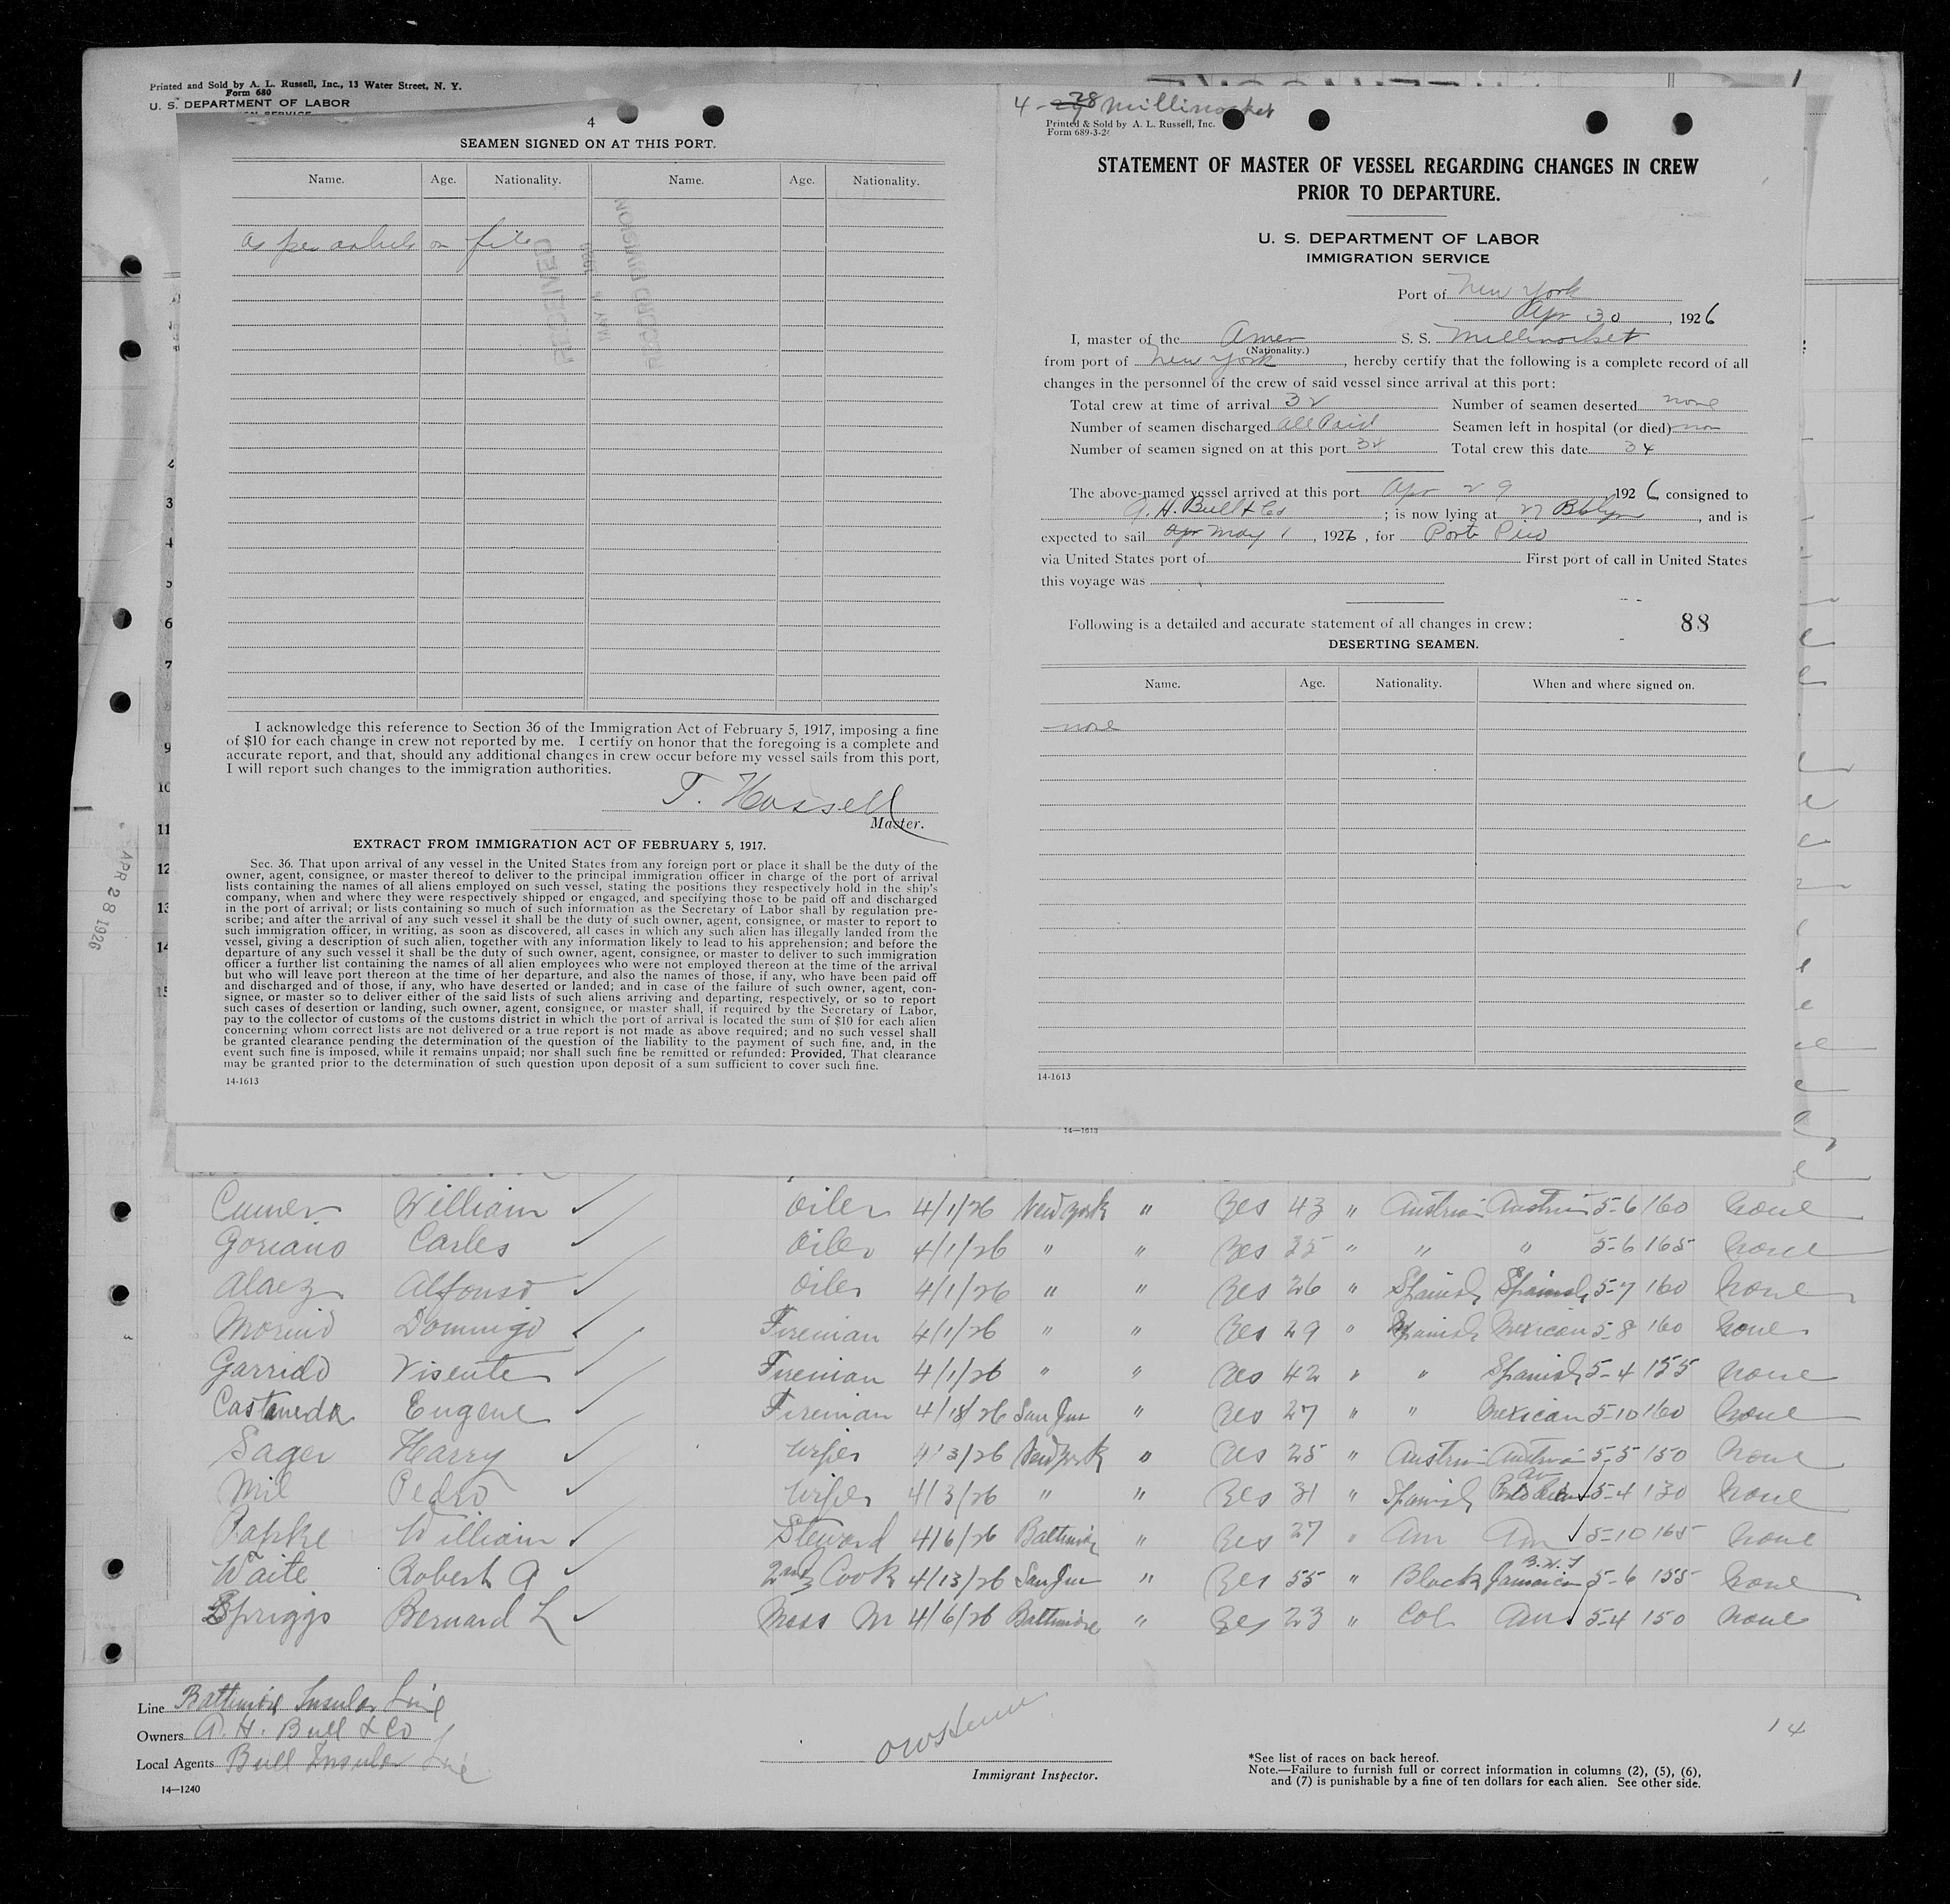 Printed and Sold by A. L. Russell, Inc., 13 Water Street, N. Y.
Form 680
U. S. DEPARTMENT OF LABOR
4
SEAMEN SIGNED ON AT THIS PORT.
Name. Age. Nationality. Name. Age. Nationality.
as per on file
RECEIVED
MAY
RECORD DIVISION
I acknowledge this reference to Section 36 of the Immigration Act of February 5, 1917, imposing a fine
of $10 for each change in crew not reported by me. I certify on honor that the foregoing is a complete and
accurate report, and that, should any additional changes in crew occur before my vessel sails from this port,
I will report such changes to the immigration authorities.
T. Hassell
Master.
EXTRACT FROM IMMIGRATION ACT OF FEBRUARY 5, 1917.
Sec. 36. That upon arrival of any vessel in the United States from any foreign port or place it shall be the duty of the
owner, agent, consignee, or master thereof to deliver to the principal immigration officer in charge of the port of arrival
lists containing the names of all aliens employed on such vessel, stating the positions they respectively hold in the ship's
company, when and where they were respectively shipped or engaged, and specifying those to be paid off and discharged
in the port of arrival; or lists containing so much of such information as the Secretary of Labor shall by regulation pre-
scribe; and after the arrival of any such vessel it shall be the duty of such owner, agent, consignee, or master to report to
such immigration officer, in writing, as soon as discovered, all cases in which any such alien has illegally landed from the
vessel, giving a description of such alien, together with any information likely to lead to his apprehension; and before the
departure of any such vessel it shall be the duty of such owner, agent, consignee, or master to deliver to such immigration
officer a further list containing the names of all alien employees who were not employed thereon at the time of the arrival
but who will leave port thereon at the time of her departure, and also the names of those, if any, who have been paid off
and discharged and of those, if any, who have deserted or landed; and in case of the failure of such owner, agent, con-
signee, or master so to deliver either of the said lists of such aliens arriving and departing, respectively, or so to report
such cases of desertion or landing, such owner, agent, consignee, or master shall, if required by the Secretary of Labor,
pay to the collector of customs of the customs district in which the port of arrival is located the sum of $10 for each alien
concerning whom correct lists are not delivered or a true report is not made as above required; and no such vessel shall
be granted clearance pending the determination of the question of the liability to the payment of such fine, and, in the
event such fine is imposed, while it remains unpaid; nor shall such fine be remitted or refunded: Provided, That clearance
may be granted prior to the determination of such question upon deposit of a sum sufficient to cover such fine.
14-1613
4-28 Millinocket
Printed & Sold by A. L. Russell, Inc.
Form 689-3-2
STATEMENT OF MASTER OF VESSEL REGARDING CHANGES IN CREW
PRIOR TO DEPARTURE.
U. S. DEPARTMENT OF LABOR
IMMIGRATION SERVICE
Port of New York
Apr 30, 1926
I, master of the Amer S. S. Millinocket
(Nationality.)
from port of New York, hereby certify that the following is a complete record of all
changes in the personnel of the crew of said vessel since arrival at this port:
Total crew at time of arrival 32 Number of seamen deserted none
Number of seamen discharged all Paid Seamen left in hospital (or died) non
Number of seamen signed on at this port 32 Total crew this date 34
The above-named vessel arrived at this port Apr 29, 1926 consigned to
A. H. Bull & Co; is now lying at 27 Bklyn, and is
expected to sail Apr May 1, 1926, for Porto Rico
via United States port of First port of call in United States
this voyage was
Following is a detailed and accurate statement of all changes in crew: 88
DESERTING SEAMEN.
Name. Age. Nationality. When and where signed on.
none
14-1613
14—1613
3
4
5
6
7
9
10
11
12
13
14
15
APR 28 1926
Cumer William Oiler 4/1/26 New York " Yes 43 " Austrian Austrian 5-6 160 None
Goriano Carles Oiler 4/1/26 " " Yes 35 " " " 5-6 165 None
Alaez Alfonso Oiler 4/1/26 " " Yes 26 " Spanish Spanish 5-7 160 None
Morino Domingo Fireman 4/1/26 " " Yes 29 " Spanish Mexican 5-8 160 None
Garrido Visente Fireman 4/1/26 " " Yes 42 " " Spanish 5-4 155 None
Castaneda Eugene Fireman 4/18/26 San Jua " Yes 27 " " Mexican 5-10 160 None
Sager Harry Wiper 4/3/26 New York " Yes 25 " Austrian Austrian 5-5 150 None
Mil Pedro Wiper 4/3/26 " " Yes 31 " Spanish Porto Rican 5-4 130 None
Papke William Steward 4/6/26 Baltimore " Yes 27 " Am Am 5-10 165 None
Waite Robert A 2nd Cook 4/13/26 San Jua " Yes 55 " Black Jamaican B.W.I 5-6 155 None
Spriggs Bernard L Mess M 4/6/26 Baltimore " Yes 23 " Col Am 5-4 150 None
Line Baltimore Insular Line
Owners A. H. Bull & Co
Local Agents Bull Insular Line
14—1240
Immigrant Inspector.
14
*See list of races on back hereof.
Note.—Failure to furnish full or correct information in columns (2), (5), (6),
and (7) is punishable by a fine of ten dollars for each alien. See other side.